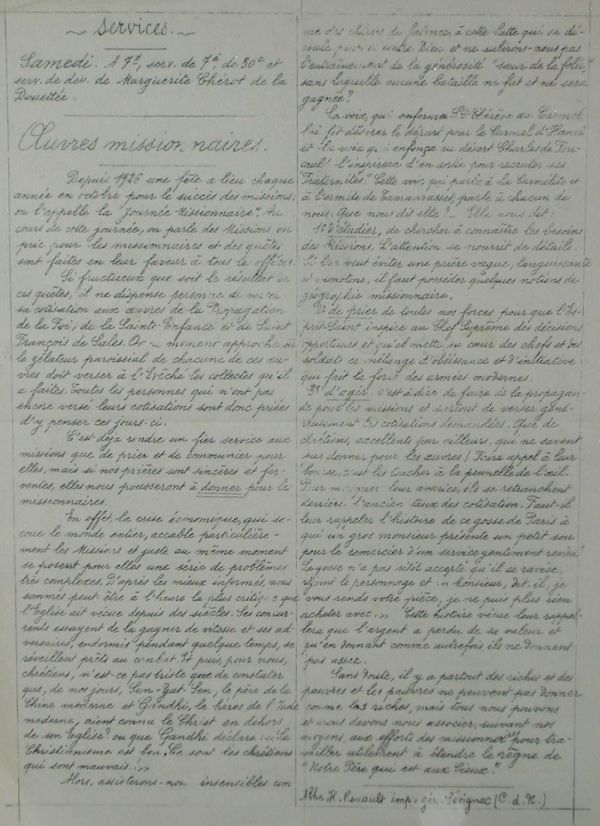 ~ Services. ~
Samedi. A 7h, serv. de 7e, de 30e et
serv. de dev. de Marguerite Thérot de la
Doucetée.
Œuvres missionnaires.
Depuis 1926 une fête a lieu chaque
année en octobre pour le succès des missions,
on l'appelle la "Journée Missionnaire". Au
cours de cette journée, on parle des Missions, on
prie pour les missionnaires et des quêtes
sont faites en leur faveur à tous les offices.
Si fructueux que soit le résultat de
ces quêtes, il ne dispense personne de verser
sa cotisation aux œuvres de la Propagation
de la Foi, de la Sainte-Enfance et de Saint
François de Sales. Or le moment approche où
le zélateur paroissial de chacune de ces œu-
vres doit verser à l'Evêché les collectes qu'il
a faites. Toutes les personnes qui n'ont pas
encore versé leurs cotisations sont donc priées
d'y penser ces jours-ci.
C'est déjà rendre un fier service aux
missions que de prier et de communier pour
elles, mais si nos prières sont sincères et fer-
ventes, elles nous pousseront à donner pour les
missionnaires.
En effet, la crise économique, qui se-
coue le monde entier, accable particulière-
ment les Missions et juste au même moment
se posent pour elles une série de problèmes
très complexes. D'après les mieux informés, nous
sommes peut être à l'heure la plus critique que
l'Eglise ait vécue depuis des siècles. Ses concur-
rents essayent de la gagner de vitesse et ses ad-
versaires, endormis pendant quelque temps, se
réveillent prêts au combat. Et puis, pour nous,
chrétiens, n'est-ce pas triste que de constater
que, de nos jours, Sun-Yat-Sen, le père de la
Chine moderne et Gandhi, le héros de l'Inde
moderne, aient connu le Christ en dehors
de son Eglise? ou que Gandhi déclare: "Le
Christianisme est bon. Ce sont les chrétiens
qui sont mauvais!"
Alors, assisterons-nous insensibles com
me des chiens de faïence à cette lutte qui se dé-
roule pour ou contre Dieu et ne suivrons-nous pas
l'entraînement de la générosité "sœur de la folie,"
sans laquelle aucune bataille ne fut et ne sera
gagnée?
La voix, qui enferma Ste Thérèse au Carmel
lui fit désirer le départ pour le Carmel d'Hanoï
et la voix qui enfonça au désert Charles de Fou-
cauld l'inspirera d'en sortir pour recruter ses
"Fraternités". Cette voix qui parle à la Carmélite et
à l'ermite de Tamanrasset parle à chacun de
nous. Que nous dit-elle? - Elle nous dit:
1° d'étudier, de chercher à connaître les besoins
des Missions. L'attention se nourrit de détails.
Si l'on veut éviter une prière vague, languissante
et monotone, il faut posséder quelques notions de
géographie missionnaire.
2° de prier de toutes nos forces pour que l'Es-
prit-Saint inspire au Chef Suprême des décisions
opportunes et qu'il mette au cœur des chefs et des
soldats ce mélange d'obéissance et d'initiative
qui fait la force des armées modernes.
3° d'agir. c'est à dire de faire de la propagan-
de pour les missions et surtout de verser géné-
reusement les cotisations demandées. Que de
chrétiens, excellents par ailleurs, qui ne savent
pas donner pour les œuvres! Faire appel à leur
bourse, c'est les toucher à la prunelle de l'œil.
Pour masquer leur avarice, ils se retranchent
derrière l'ancien taux des cotisations. Faut-il
leur rappeler l'histoire de ce gosse de Paris à
qui un gros monsieur présente un petit sou
pour le remercier d'un service gentiment rendu?
Le gosse n'a pas sitôt accepté qu'il se ravise,
rejoint le personnage et: "Monsieur, dit-il, je
vous rends votre pièce, je ne puis plus rien
acheter avec." Cette histoire vécue leur rappel-
lera que l'argent a perdu de sa valeur et
qu'en donnant comme autrefois, ils ne donnent
pas assez.
Sans doute, il y a partout des riches et des
pauvres et les pauvres ne peuvent pas donner
comme les riches, mais tous nous pouvons
et nous devons nous associer, suivant nos
moyens, aux efforts des missionnaires pour tra-
vailler utilement à étendre le règne de
"Notre Père qui est aux Cieux."
Abbé H. Rouault imp. gér. Sévignac (C. d. N.)